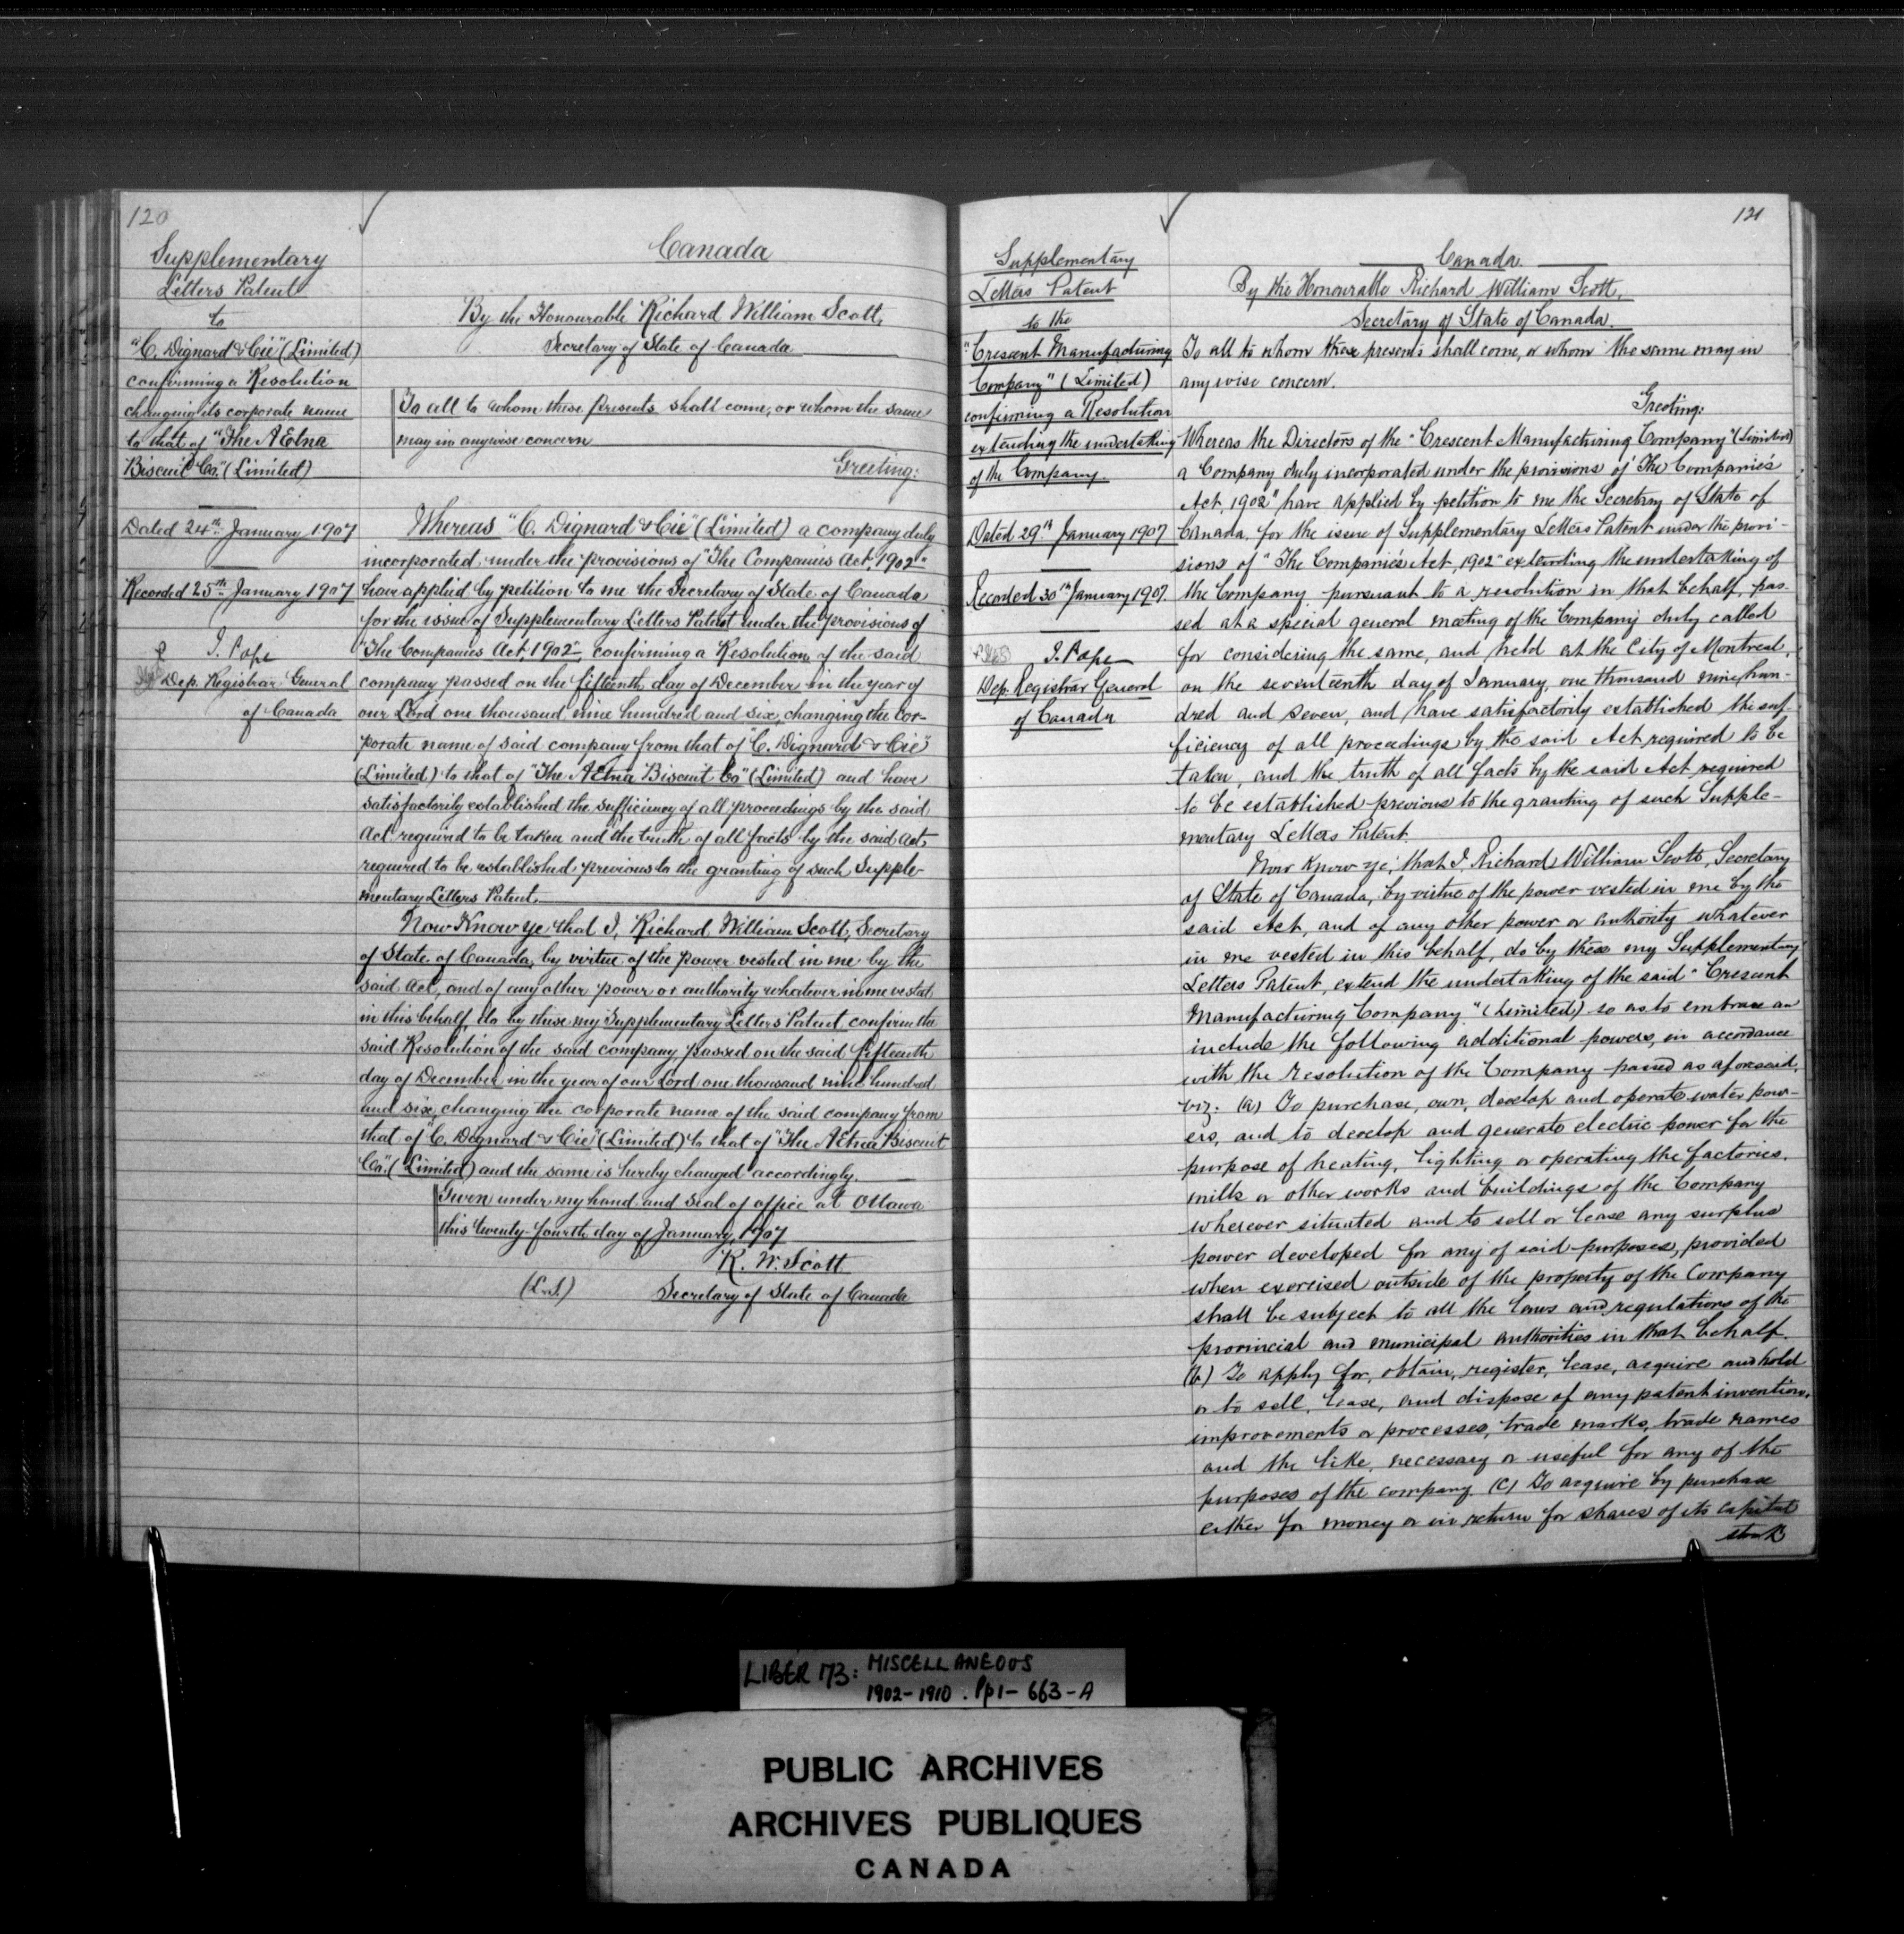 120
Supplementary
Letters Patent
to
"C. Dignard & Cie" (Limited)
confirming a Resolution
changing its corporate name
to that of "The AEtna
Biscuit Co." (Limited)
Dated 24th January 1907
Recorded 25th January 1907
J. Pope
Dep. Registrar General
of Canada
Canada
By the Honourable Richard William Scott,
Secretary of State of Canada
To all to whom these presents shall come, or whom the same
may in anywise concern
Greeting:
Whereas "C. Dignard & Cie" (Limited) a company duly
incorporated under the provisions of "The Companies Act, 1902"
have applied by petition to me the Secretary of State of Canada
for the issue of Supplementary Letters Patent under the provisions of
"The Companies Act, 1902", confirming a Resolution of the said
company passed on the fifteenth day of December in the year of
our Lord one thousand nine hundred and six, changing the cor-
porate name of said company from that of "C. Dignard & Cie"
(Limited) to that of "The AEtna Biscuit Co" (Limited) and have
satisfactorily established the sufficiency of all proceedings by the said
Act required to be taken and the truth of all facts by the said Act
required to be established previous to the granting of such Supple-
mentary Letters Patent.
Now Know ye that I, Richard William Scott, Secretary
of State of Canada, by virtue of the power vested in me by the
said Act, and of any other power or authority whatever in me vested
in this behalf, do by these my Supplementary Letters Patent, confirm the
said Resolution of the said company passed on the said fifteenth
day of December in the year of our Lord one thousand nine hundred
and six, changing the corporate name of the said company from
that of "C. Dignard & Cie" (Limited) to that of "The AEtna Biscuit
Co." (Limited) and the same is hereby changed accordingly.
Given under my hand and seal of office at Ottawa
this twenty-fourth day of January, 1907
R. W. Scott
(L.S.) Secretary of State of Canada
121
Supplementary
Letters Patent
to the
"Crescent Manufacturing
Company" (Limited)
confirming a Resolution
extending the undertaking
of the Company.
Dated 29th January 1907
Recorded 30th January 1907.
J. Pope
Dep. Registrar General
of Canada
Canada.
By the Honourable Richard William Scott,
Secretary of State of Canada.
To all to whom these presents shall come, or whom the same may in
anywise concern.
Greeting:
Whereas the Directors of the "Crescent Manufacturing Company" (Limited)
a Company duly incorporated under the provisions of "The Companies
Act, 1902" have applied by petition to me the Secretary of State of
Canada, for the issue of Supplementary Letters Patent under the provi-
sions of "The Companies Act, 1902" extending the undertaking of
the Company pursuant to a resolution in that behalf, pas-
sed at a special general meeting of the Company duly called
for considering the same, and held at the City of Montreal,
on the seventeenth day of January, one thousand nine hun-
dred and seven, and have satisfactorily established the suf-
ficiency of all proceedings by the said Act required to be
taken, and the truth of all facts by the said Act required
to be established previous to the granting of such Supple-
mentary Letters Patent.
Now Know ye, that I, Richard William Scott, Secretary
of State of Canada, by virtue of the power vested in me by the
said Act, and of any other power or authority whatever
in me vested in this behalf, do by these my Supplementary
Letters Patent, extend the undertaking of the said "Crescent
Manufacturing Company" (Limited) so as to embrace and
include the following additional powers, in accordance
with the resolution of the Company passed as aforesaid,
viz: (a) To purchase, own, develop and operate water pow-
ers, and to develop and generate electric power for the
purpose of heating, lighting or operating the factories,
mills or other works and buildings of the Company
wherever situated and to sell or lease any surplus
power developed for any of said purposes, provided
when exercised outside of the property of the Company
shall be subject to all the laws and regulations of the
provincial and municipal authorities in that behalf.
(b) To apply for, obtain, register, lease, acquire and hold
or to sell, lease, and dispose of any patent invention,
improvements or processes, trade marks, trade names
and the like, necessary or useful for any of the
purposes of the company. (c) To acquire by purchase
either for money or in return for shares of its capital
stock
LIBER 173: MISCELLANEOUS
1902-1910. Pp 1-663-A
PUBLIC ARCHIVES
ARCHIVES PUBLIQUES
CANADA